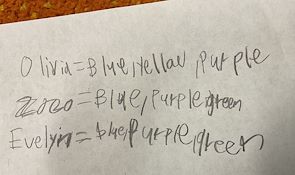 Olivia=Blue,yellow,Purple
Zoro=Blue,Purple green
Evelyin=blue,Purple,green